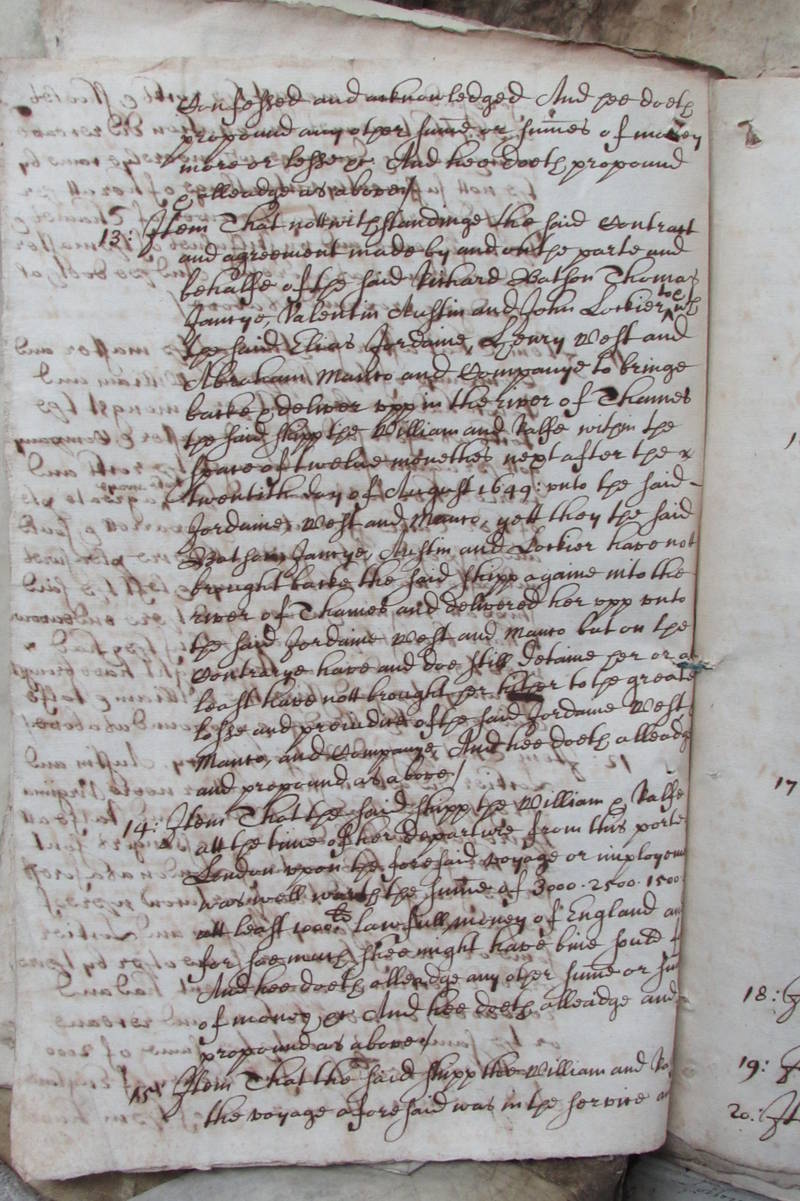 Confessed and acknowledged And hee doeth
propound any other summe or summes of money
more or lesse &c And hee doeth propound
& alleadge as above/
13: Item That nottwithstandinge the said Contract
and agreement made by and on the parte and
behalfe of the said Richard Batson Thomas
Jancye Valentin Austin and John Lockier to & with
the said Elias Jordaine, Henry West and
Abraham Manto and Companye to bringe
backe & deliver upp in the river of Thames
the said shipp the William and Ralfe within the
space of twelve monethes next after the
twentith day of August 1649: unto the said
Jordaine, West and Manto, yett they the said
Batson Jancye, Austin and Lockier have not
brought backe the said shipp againe into the
river of Thames and delivered her upp unto
the said Jordaine West and Manto but on the
Contrarye have and doe still detaine her or at
least have nott brought her to the greate
losse and preiudice of the said Jordaine West
Manto, and Companye, And hee doeth alleadge
and propound as above/
14: Item That the said shipp the William & Ralfe
att the time of her departure from this porte
London upon the foresaid voyage or imployem
was well worth the summe of 3000. 2500. 1500
att least 1000li lawfull money of England an
for soe much shee might have bine sould
And hee doeth alleadge any other summe or su
of money &c And hee doeth alleadge and
propound as above/
15: Item That the said shipp the William and Ra
the voyage aforesaid was in the service
17
18:
19:
20: It